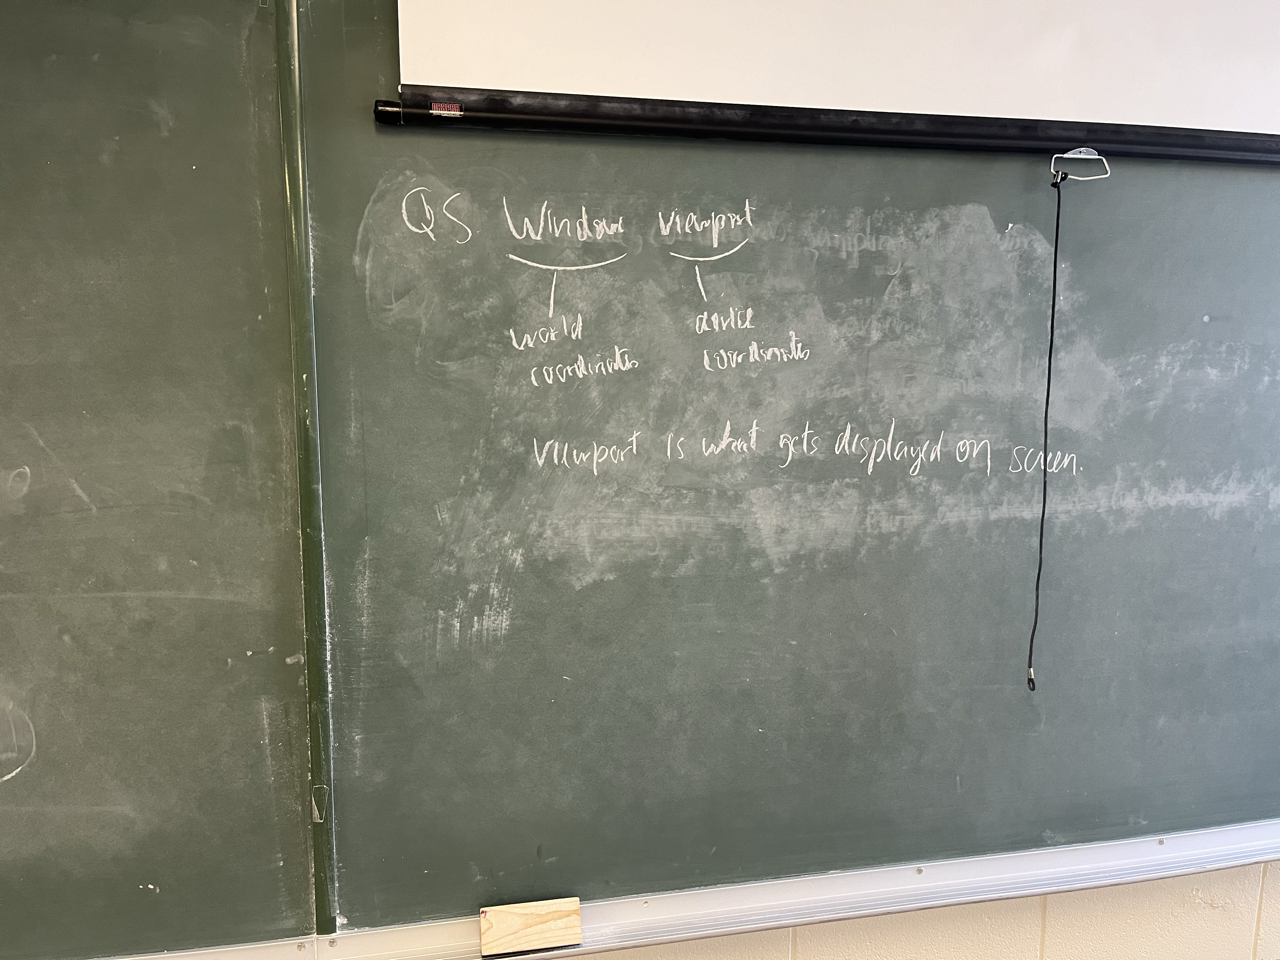 Q5 Window viewport
world device
coordinates coordinates
viewport is what gets displayed on screen.